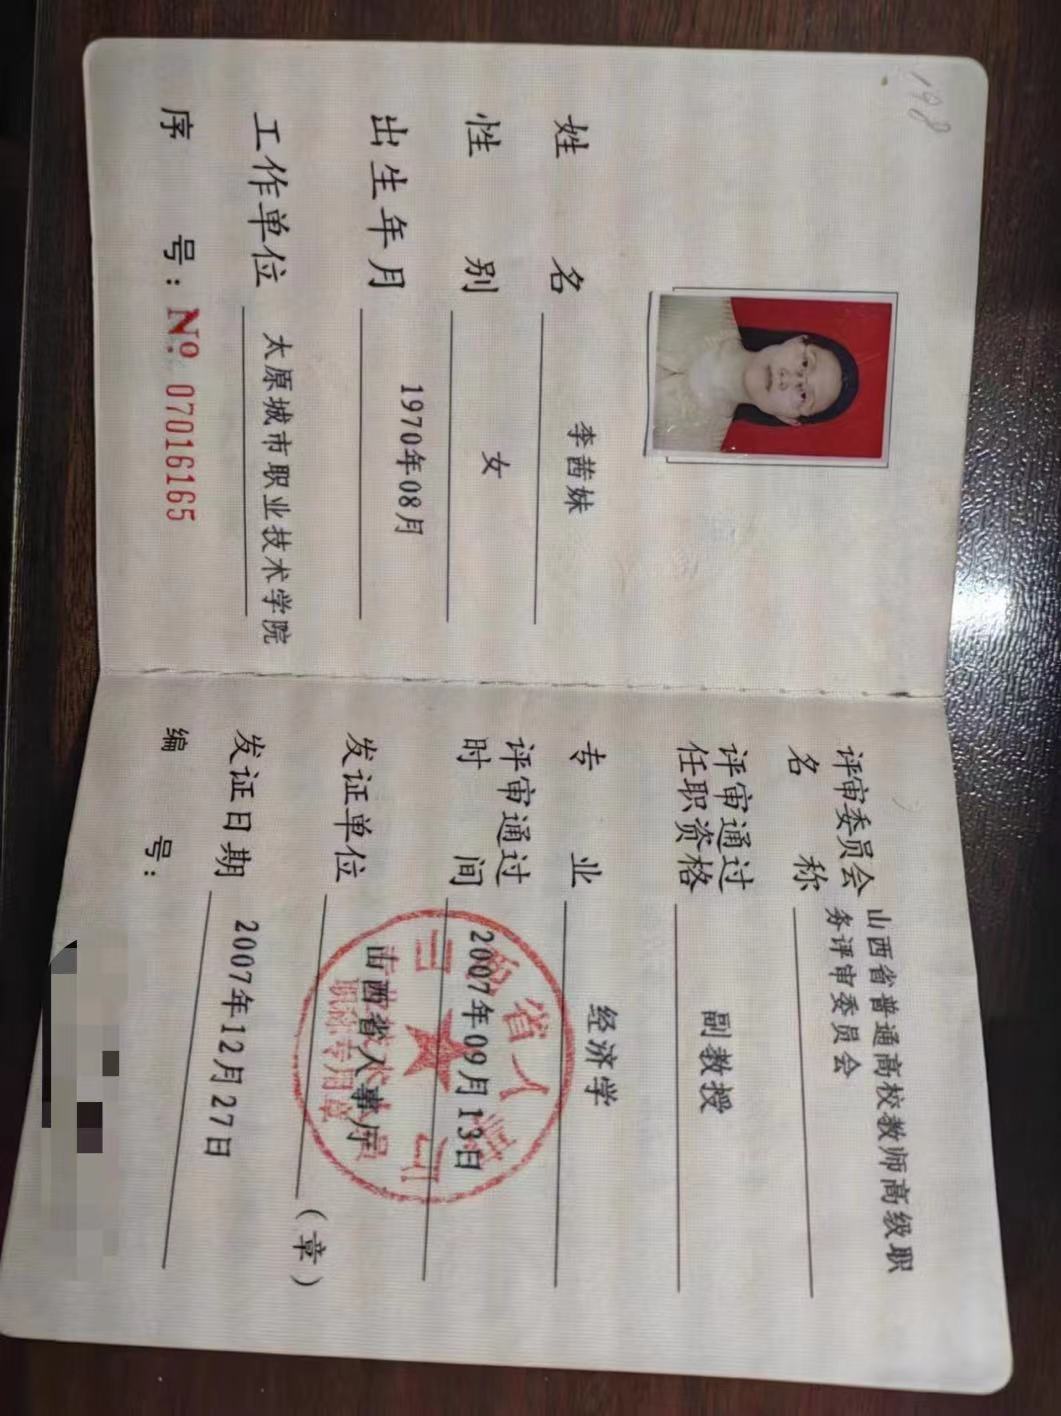 198
姓 名 李茜妹
性 别 女
出生年月 1970年08月
工作单位 太原城市职业技术学院
序 号: № 07016165
评审委员会
名 称
山西省普通高校教师高级职
务评审委员会
评审通过
任职资格
副教授
专 业 经济学
评审通过
时 间
2007年09月13日
发证单位 山西省人事厅 (章)
职称专用章
发证日期 2007年12月27日
编 号: